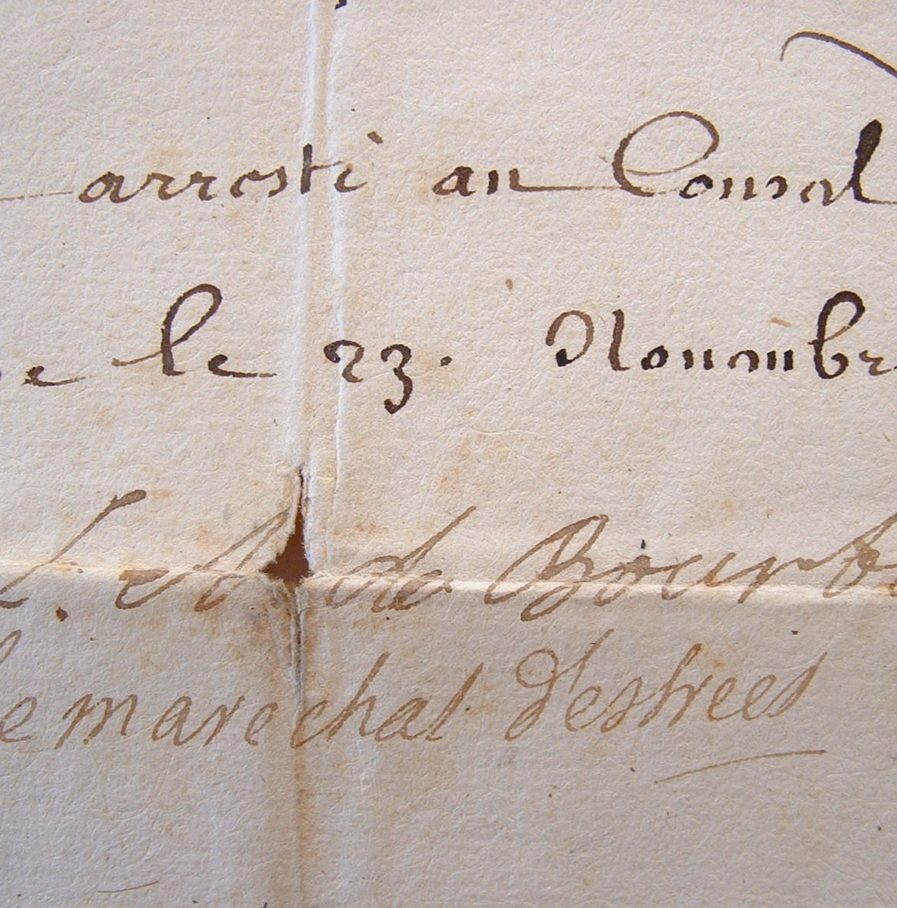 arresté au Conseil
le 23. Nouembre
L. A de Bourbo
le marechal d'estrees